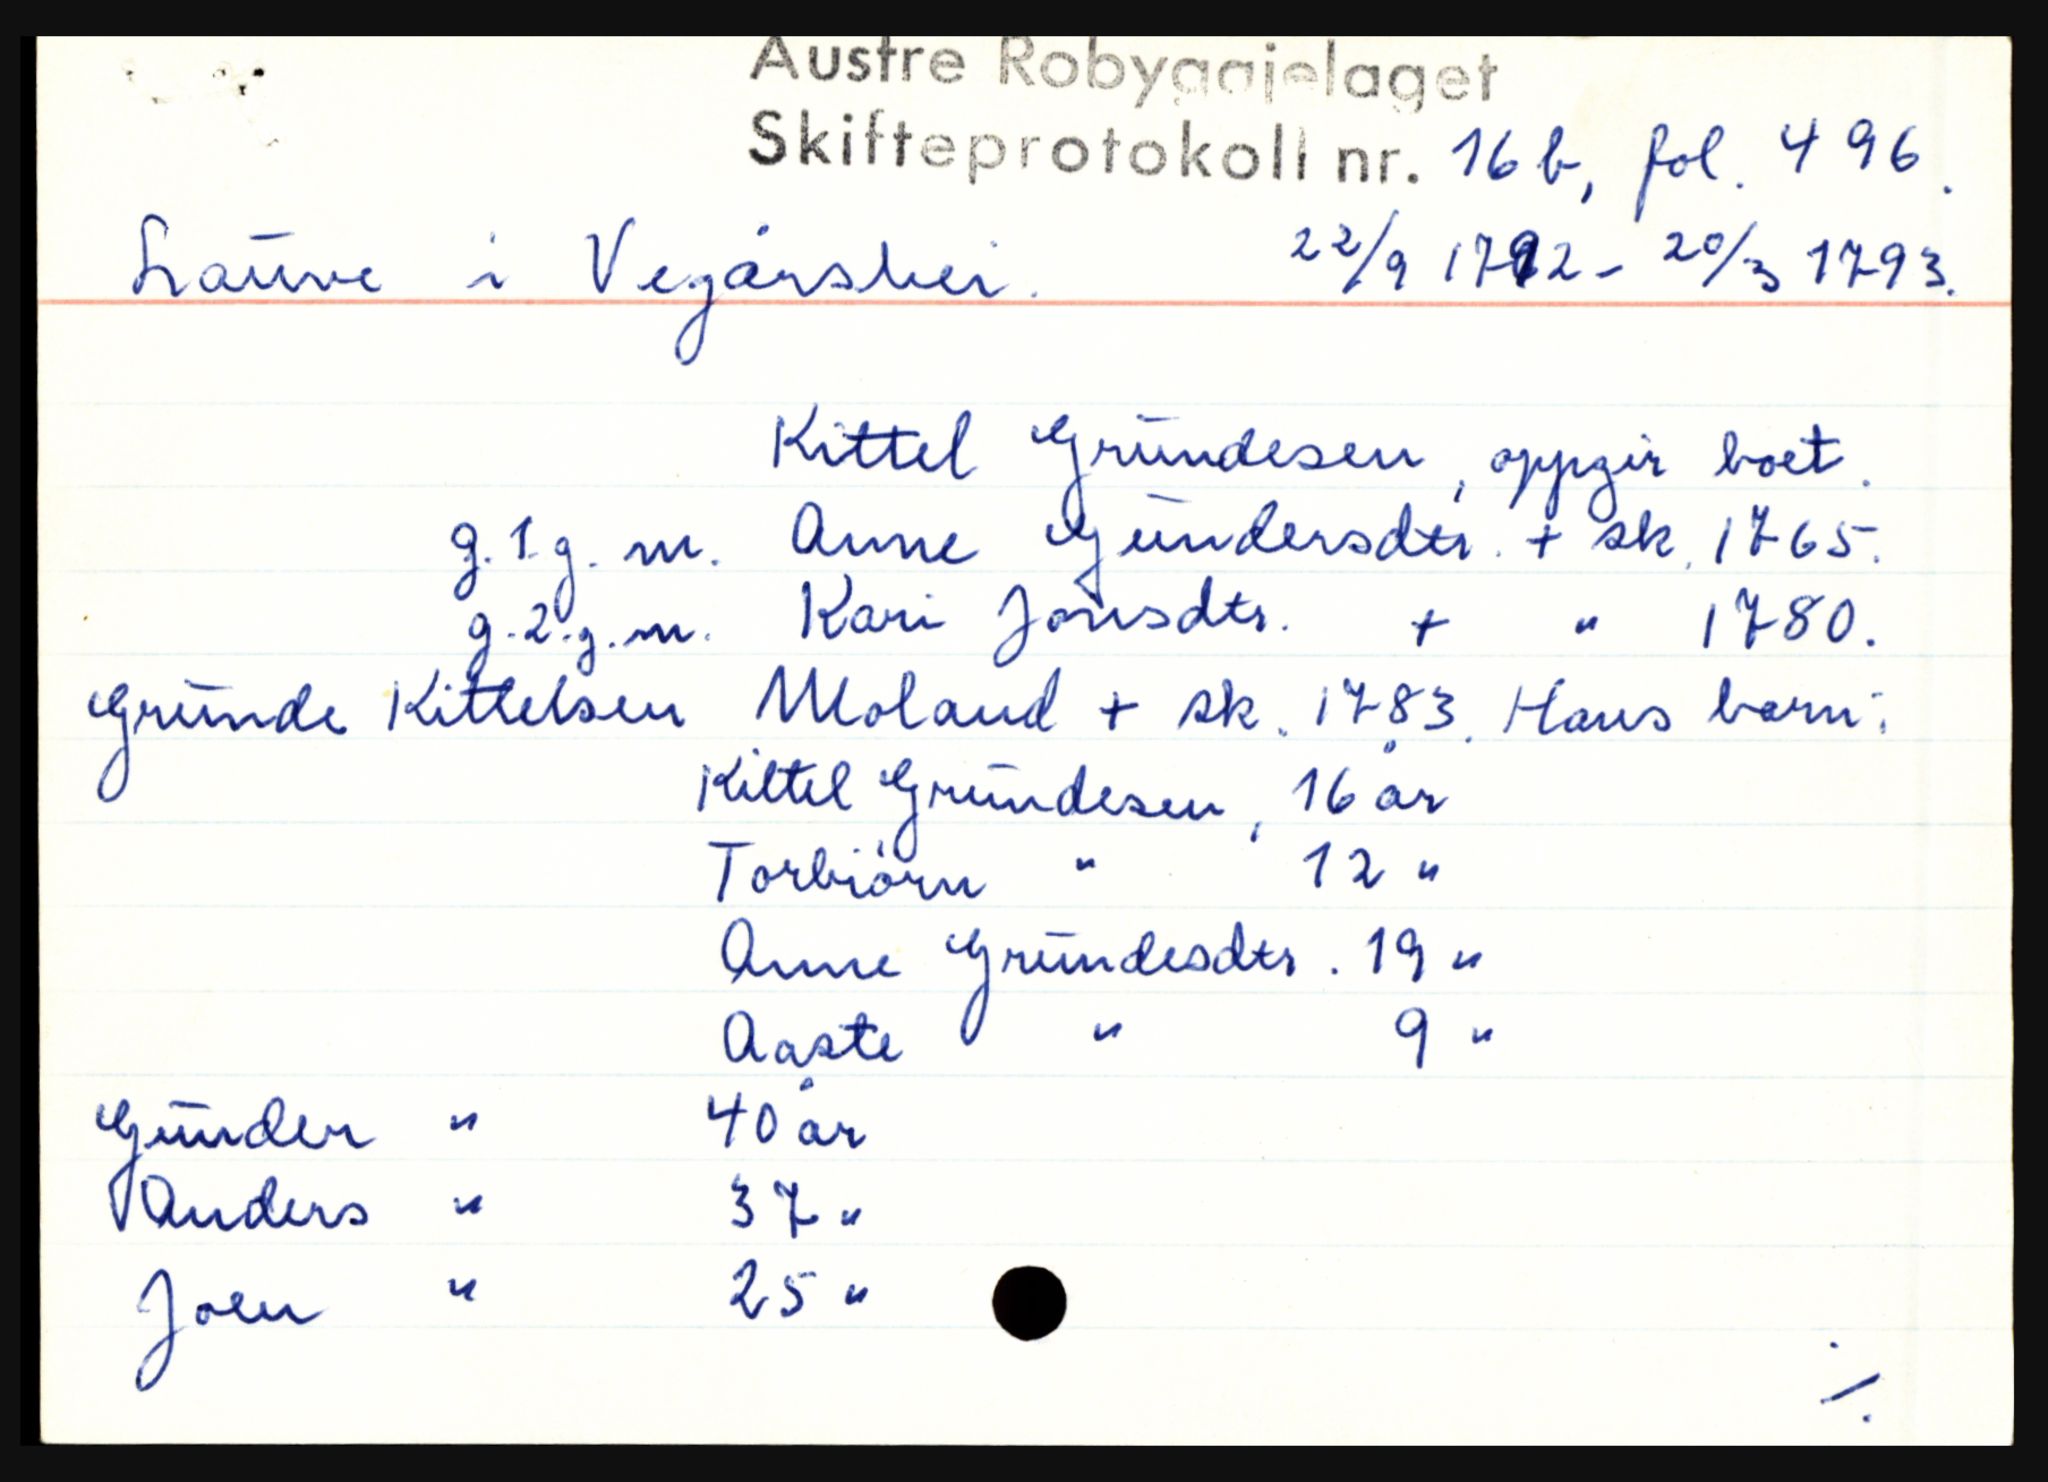 Austre Robyggjelaget
Skifteprotokoll nr. 16 b, fol. 496.
Lauve i Vegårshei. 22/9 1792 - 20/3 1793.
Kittel Grundesen, oppgir boet.
g. 1. g. m. Anne Gundersdtr. + sk. 1765.
g. 2. g. m. Kari Jonsdtr. + " 1780.
Grunde Kittelsen Moland + sk. 1783. Hans barn:
Kittel Grundesen, 16 år
Torbiörn " 12 "
Anne Grundesdtr. 19 "
Aaste " 9 "
Gunder " 40 år
Anders " 37 "
Joen " 25 "
./.